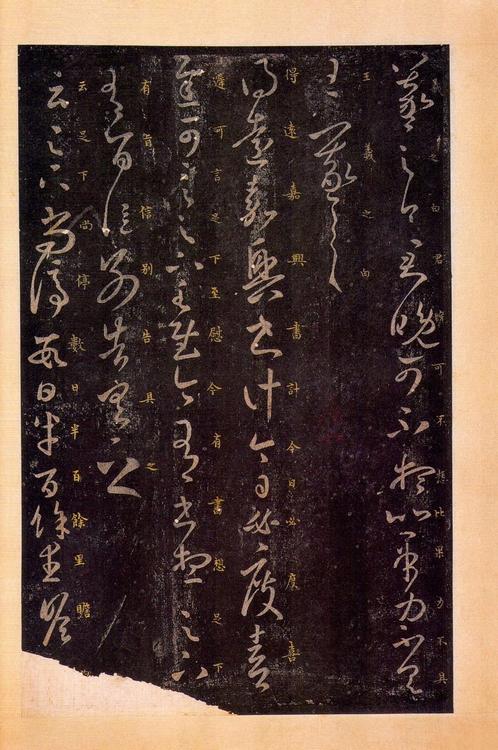 羲之白君晚可不想比果力不具
王羲之白
得遠嘉興書計今日必度喜
遲可言之下至慰今有書想足下
有旨信別告具之
云足下尚停數日半百餘里瞻